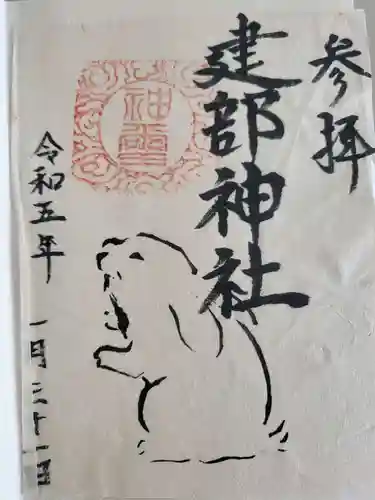 参拝
建部神社
神璽
令和五年
一月三十一日